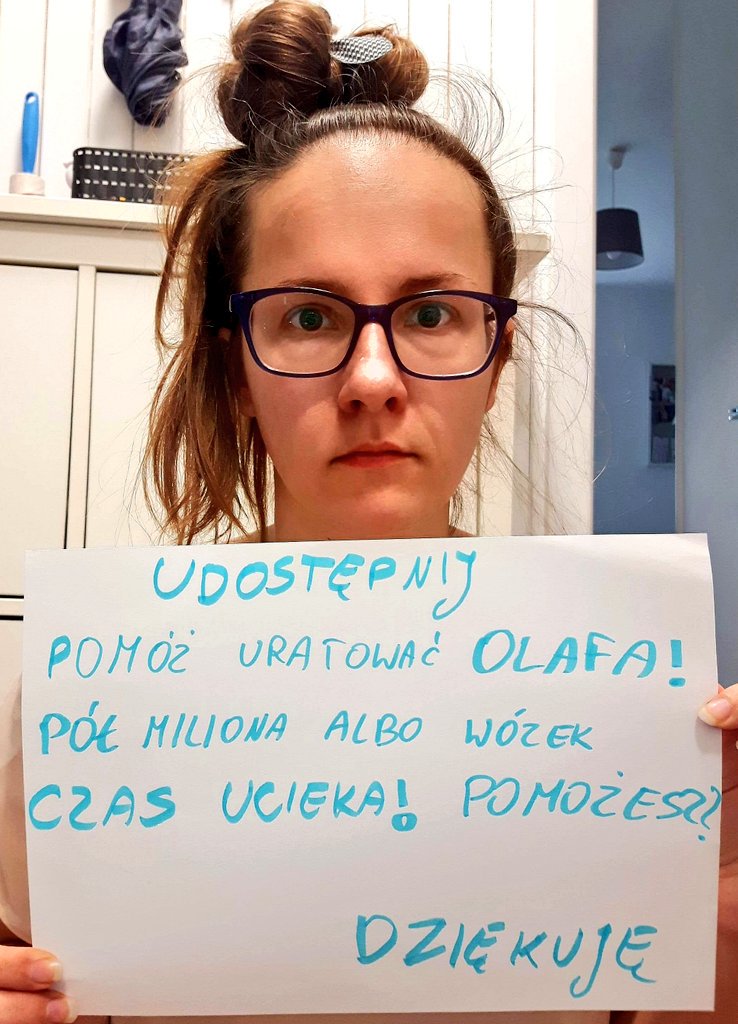 UDOSTĘPNIJ
POMÓŻ URATOWAĆ OLAFA!
PÓŁ MILIONA ALBO WÓZEK
CZAS UCIEKA! POMOŻESZ?
DZIĘKUJĘ